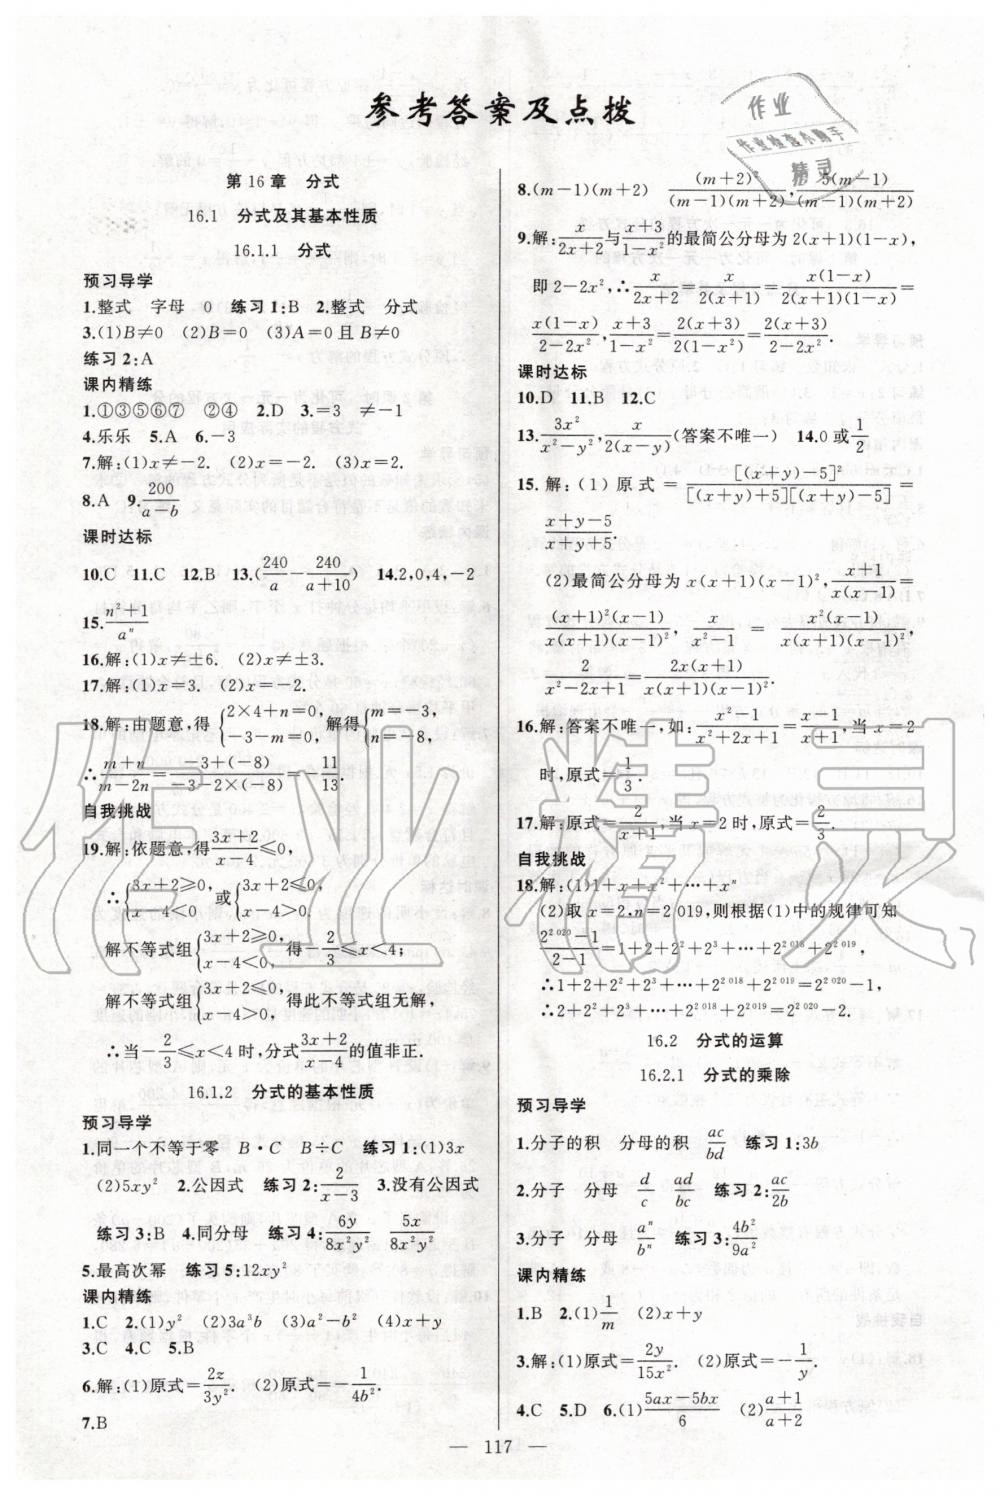 参考答案及点拨
作业
作业检查小助手
精灵
第16章 分式
16.1 分式及其基本性质
16.1.1 分式
预习导学
1.整式 字母 0 练习1:B 2.整式 分式
3.(1)B≠0 (2)B=0 (3)A=0且B≠0
练习2:A
课内精练
1.①③⑤⑥⑦ ②④ 2.D 3.=3 ≠-1
4.乐乐 5.A 6.-3
7.解:(1)x≠-2. (2)x=-2. (3)x=2.
8.A 9.200/(a-b)
课时达标
10.C 11.C 12.B 13.(240/a-240/(a+10)) 14.2,0,4,-2
15.(n²+1)/aⁿ
16.解:(1)x≠±6. (2)x≠±3.
17.解:(1)x=3. (2)x=-2.
18.解:由题意,得{2×4+n=0, -3-m=0,解得{m=-3, n=-8,
∴(m+n)/(m-2n)=(-3+(-8))/(-3-2×(-8))=-11/13.
自我挑战
19.解:依题意,得(3x+2)/(x-4)≤0,
∴{3x+2≥0, x-4<0或{3x+2≤0, x-4>0.
解不等式组{3x+2≥0, x-4<0,得-2/3≤x<4;
解不等式组{3x+2≤0, x-4>0,得此不等式组无解,
∴当-2/3≤x<4时,分式(3x+2)/(x-4)的值非正.
16.1.2 分式的基本性质
预习导学
1.同一个不等于零 B·C B÷C 练习1:(1)3x
(2)5xy² 2.公因式 练习2:2/(x-3) 3.没有公因式
练习3:B 4.同分母 练习4:6y/(8x²y²) 5x/(8x²y²)
5.最高次幂 练习5:12xy²
课内精练
1.C 2.(1)y² (2)3a³b (3)a²-b² (4)x+y
3.C 4.C 5.B
6.解:(1)原式=2z/(3y²). (2)原式=-1/(4b²).
7.B
8.(m-1)(m+2) (m+2)²/((m-1)(m+2)), 5(m-1)/((m-1)(m+2))
9.解:x/(2x+2)与(x+3)/(1-x²)的最简公分母为2(x+1)(1-x),
即2-2x²,∴x/(2x+2)=x/(2(x+1))=x(1-x)/(2(x+1)(1-x))=
x(1-x)/(2-2x²),(x+3)/(1-x²)=2(x+3)/(2(1-x²))=2(x+3)/(2-2x²).
课时达标
10.D 11.B 12.C
13.3x²/(x²-y²),x/(2(x-y))(答案不唯一) 14.0或1/2
15.解:(1)原式=[(x+y)-5]²/([(x+y)+5][(x+y)-5])=
(x+y-5)/(x+y+5).
(2)最简公分母为x(x+1)(x-1)²,(x+1)/(x(x-1))=
(x+1)²(x-1)/(x(x+1)(x-1)²), x/(x²-1)=x²(x-1)/(x(x+1)(x-1)²),
2/(x²-2x+1)=2x(x+1)/(x(x+1)(x-1)²).
16.解:答案不唯一,如:(x²-1)/(x²+2x+1)=(x-1)/(x+1),当x=2
时,原式=1/3.
17.解:原式=2/(x+1),当x=2时,原式=2/3.
自我挑战
18.解:(1)1+x+x²+…+xⁿ
(2)取x=2,n=2 019,则根据(1)中的规律可知
(2^2 020-1)/(2-1)=1+2+2²+2³+…+2^2 018+2^2 019,
∴1+2+2²+2³+…+2^2 018+2^2 019=2^2 020-1,
∴2+2²+2³+…+2^2 018+2^2 019=2^2 020-2.
16.2 分式的运算
16.2.1 分式的乘除
预习导学
1.分子的积 分母的积 ac/bd 练习1:3b
2.分子 分母 d/c ad/bc 练习2:ac/2b
3.分子 分母 aⁿ/bⁿ 练习3:4b²/9a²
课内精练
1.B 2.(1)1/m (2)x+y
3.解:(1)原式=2y/(15x²). (2)原式=-1/y.
4.C 5.D 6.(1)(5ax-5bx)/6 (2)(a+1)/(a+2)
— 117 —
作业精灵